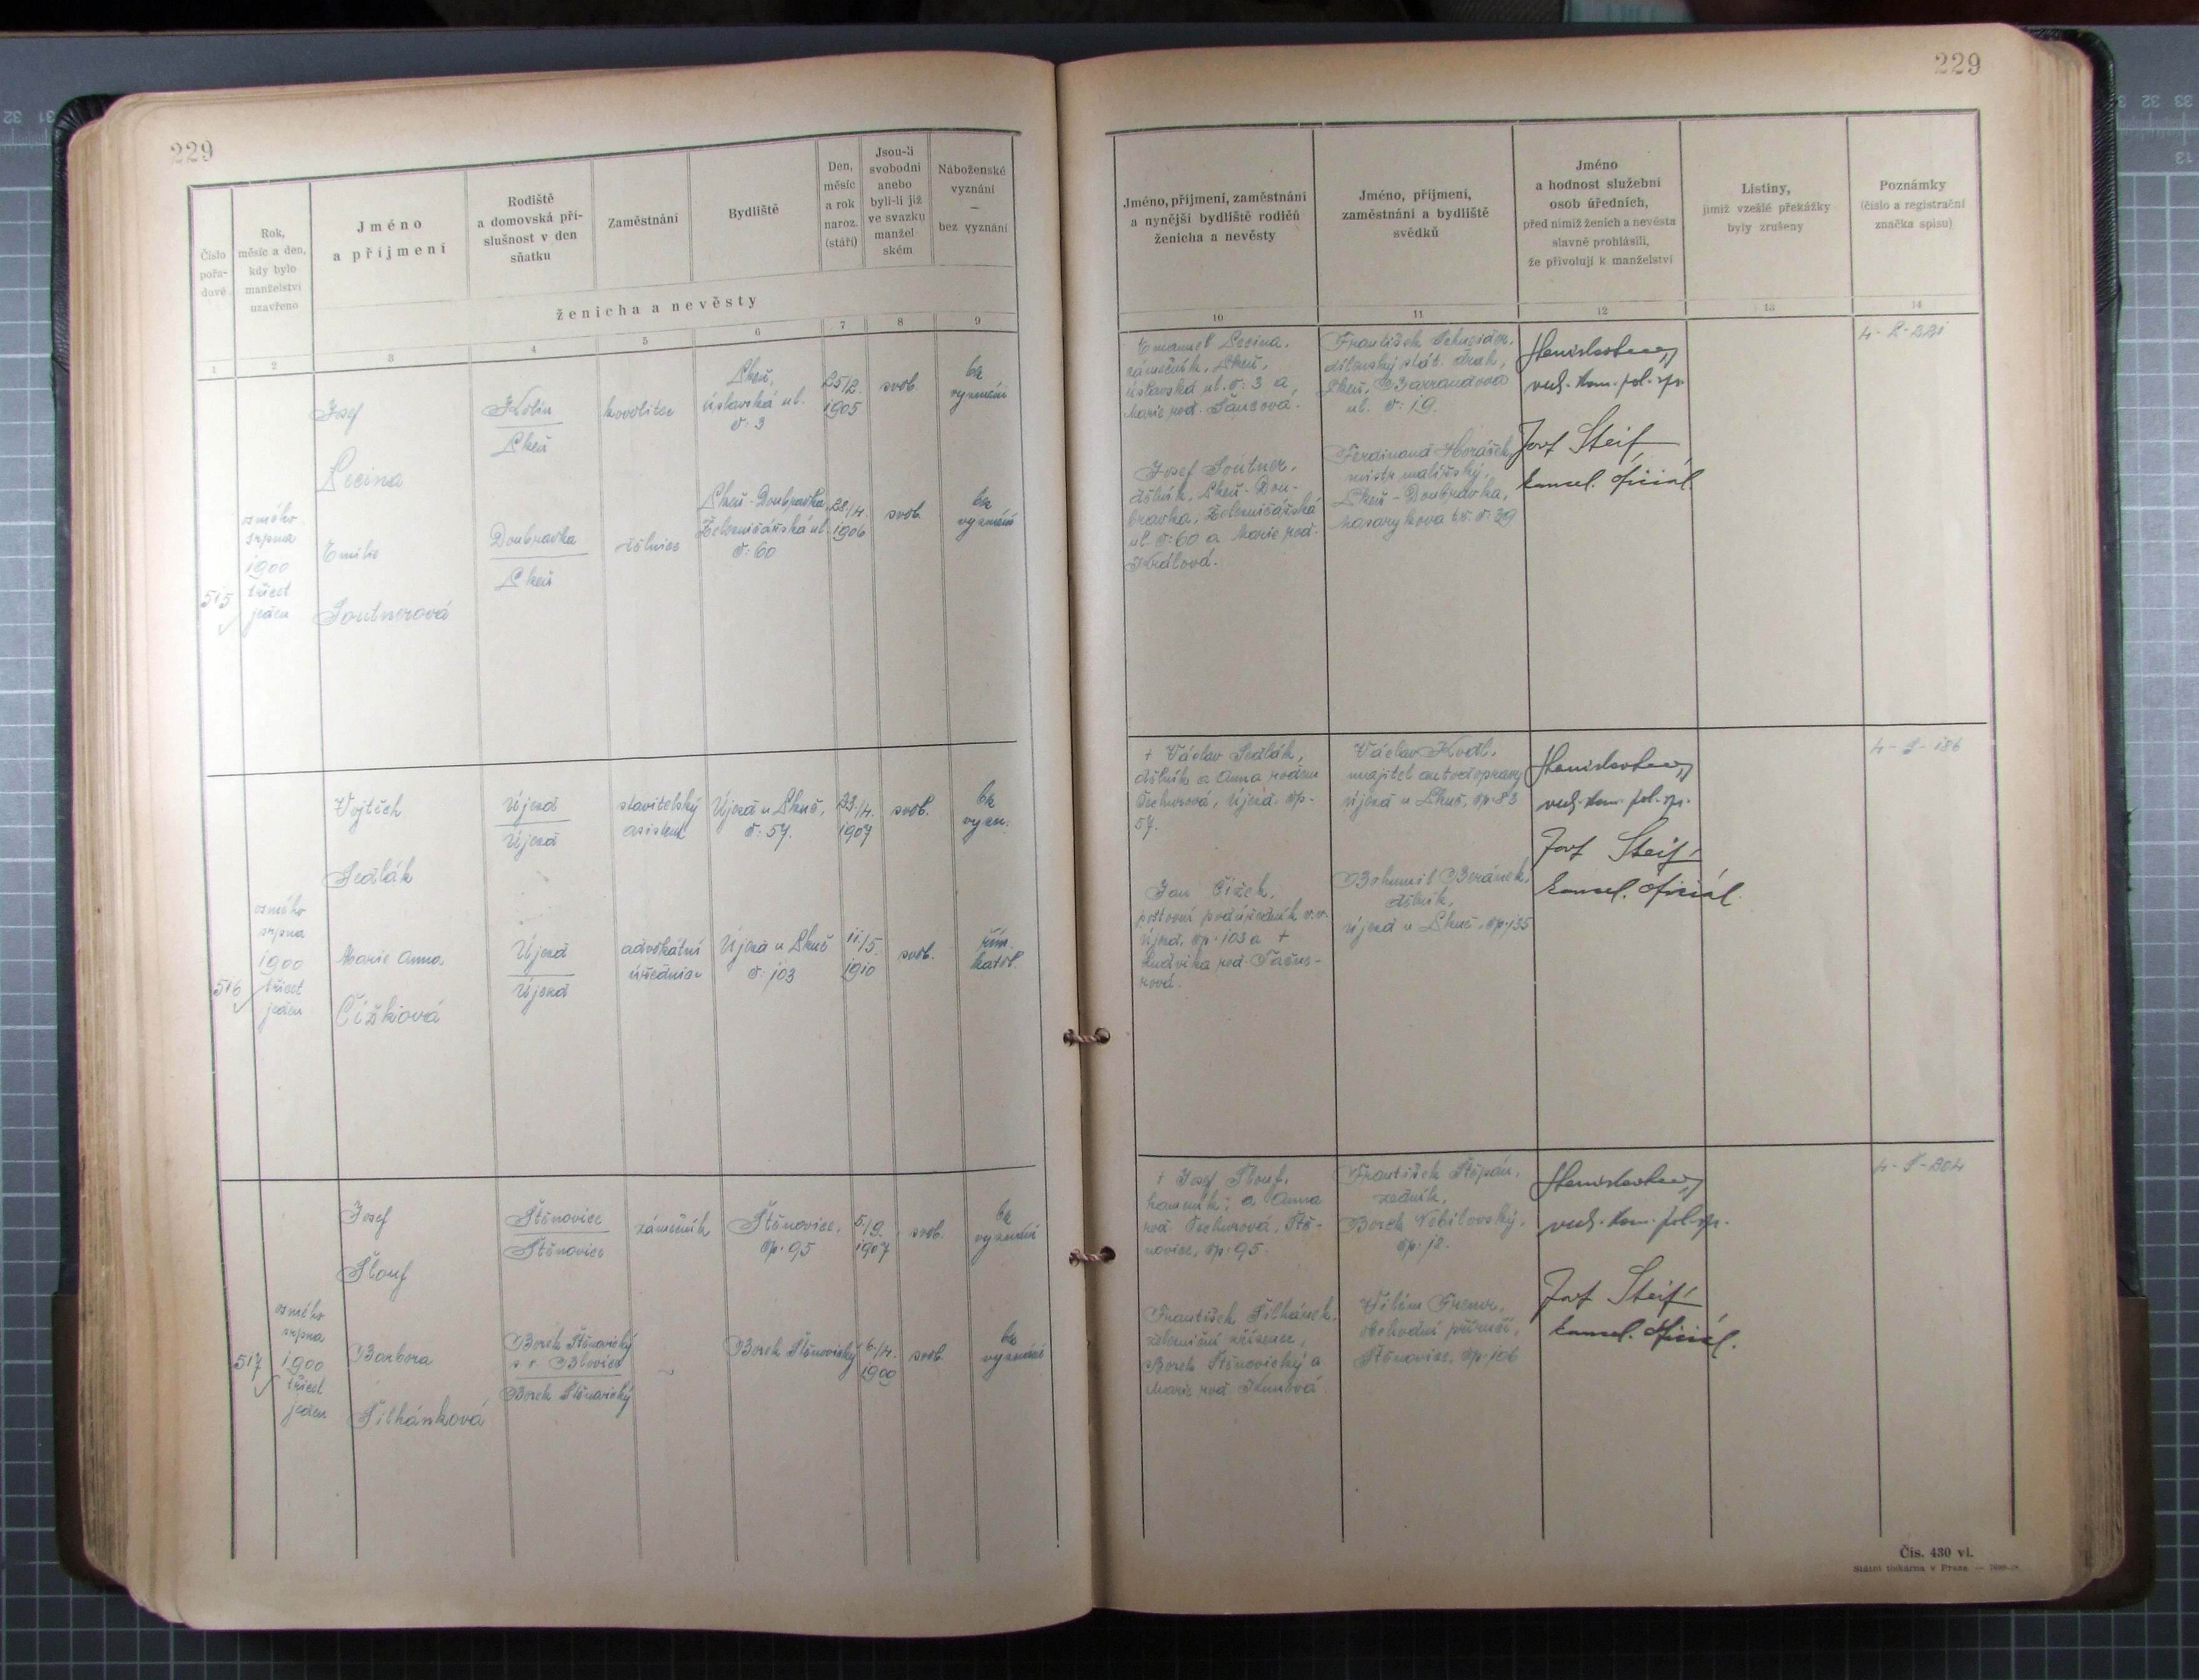 229
229
Číslo
pořa-
dové
Rok,
měsíc a den,
kdy bylo
manželství
uzavřeno
Jméno
a příjmení
Rodiště
a domovská pří-
slušnost v den
sňatku
Zaměstnání
Bydliště
Den,
měsíc
a rok
naroz.
(stáří)
Jsou-li
svobodni
anebo
byli-li již
ve svazku
manžel-
ském
Náboženské
vyznání
—
bez vyznání
ženicha a nevěsty
1
2
3
4
5
6
7
8
9
515
osmého
srpna
1900
třicet
jeden
Josef
Lecina
Kolín
kovolitec
úslavská ul.
č: 3
25/2.
1905
svob.
bez
vyznání
Emilie
Soutnerová
Doubravka
dělnice
Železničářská ul.
č: 60
28/4.
1906
svob.
bez
vyznání
516
osmého
srpna
1900
třicet
jeden
Vojtěch
Sedlák
Újezd
Újezd
stavitelský
asistent
č: 57.
23./4.
1907
svob.
bez
vyzn.
Marie Anna
Čížková
Újezd
Újezd
advokátní
úřednice
č: 103
11./5.
1910
svob.
řím.
katol.
517
osmého
srpna
1900
třicet
jeden
Josef
Šlouf
Štěnovice
Štěnovice
zámečník
Štěnovice,
čp. 95
5./9.
1907
svob.
bez
vyznání
Barbora
Šilhánková
Borek Štěnovický
s. o. Blovice
Borek Štěnovický
Borek Štěnovický
6./4.
1900
svob.
bez
vyznání
Jméno, příjmení, zaměstnání
a nynější bydliště rodičů
ženicha a nevěsty
Jméno, příjmení,
zaměstnání a bydliště
svědků
Jméno
a hodnost služební
osob úředních,
před nimiž ženich a nevěsta
slavně prohlásili,
že přivolují k manželství
Listiny,
jimiž vzešlé překážky
byly zrušeny
Poznámky
(číslo a registrační
značka spisu)
10
11
12
13
14
Emanuel Lecina,
zámečník,
úslavská ul. č: 3 a
Marie roz.
Josef Soutner,
dělník,
bravka, Železničářská
ul. č: 60 a Marie roz.
Králová.
František Schneider,
dílenský stát. drah,
Barrandova
ul. č: 19.
Ferdinand Horáček,
mistr malířský,
Doubravka,
Masarykova tř. č: 39
vrch. kom. pol. spr.
Josf Steif
kancel. oficiál.
4-L-221
† Václav Sedlák,
dělník a Anna rozená
Tschurová, Újezd. čp.
57.
Jan Čížek,
poštovní podúředník v.v.
Újezd, čp. 103 a †
Ludvika roz.
Václav Kodl,
majitel autodopravy
čp. 83
Bohumil Beránek,
dělník,
čp. 135
vrch. kom. pol. spr.
Josf Steif
kancel. oficiál.
4-S-186
† Josef Šlouf,
kameník, a Anna
roz. Tschurová, Ště-
novice, čp: 95.
František Šilhánek,
železniční zřízenec,
Borek Štěnovický a
Marie roz. Kunšová
František Štěpán,
zedník,
Borek Nebílovský,
čp. 18.
Vilém
obchodní příručí,
Štěnovice, čp. 106
vrch. kom. pol. spr.
Josf Steif
kancel. oficiál.
4-Š-204
Čís. 430 vl.
Státní tiskárna v Praze —